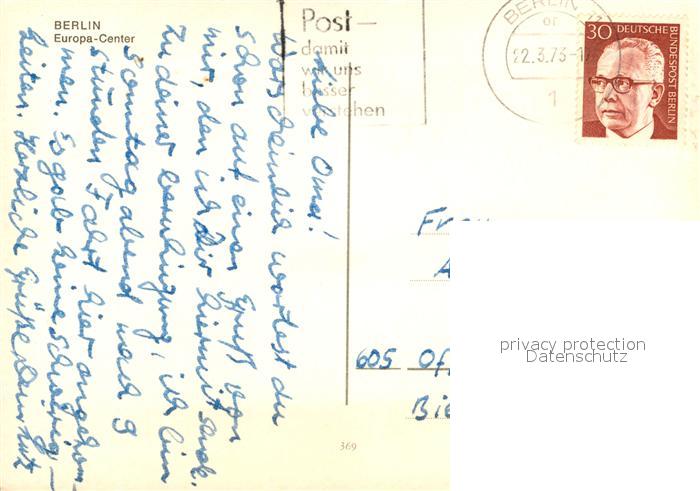 BERLIN
Europa-Center
Post-
damit
wir uns
besser
verstehen
BERLIN
22.3.73-1
1
30 DEUTSCHE
BUNDESPOST BERLIN
Liebe Oma!
Wahrscheinlich wartest du
schon auf einen Gruß von
mir, den ich Dir hiermit schick.
Zu deiner beruhigung, ich bin
Sonntag abend nach 9
stunden Fahrt hier angekom
men. Es gab keine schwierig-
keiten. Herzliche Grüße
Frau
A
605 Of
Bie
369
privacy protection
Datenschutz